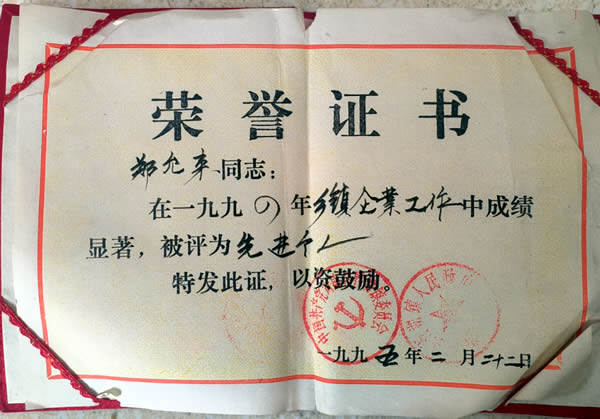 荣誉证书
郑允来同志:
在一九九四年乡镇企業工作中成绩
显著,被评为先进个人
特发此证,以资鼓励。
中国共产党
委员会
镇人民政府
一九九五年二月二十二日